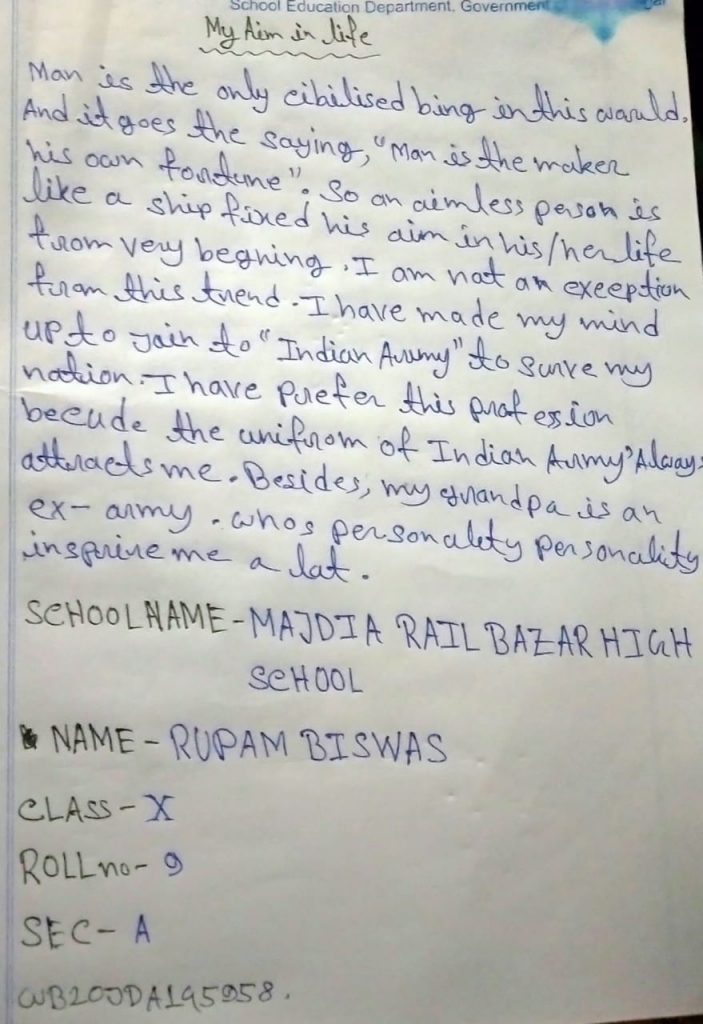 School Education Department, Government
My Aim in life
Man is the only cibilised bing in this warld.
And it goes the saying, "Man is the maker
his own fortune". So an aimless person is
like a ship fixed his aim in his/her life
from very begning. I am not an exeeption
from this trend. I have made my mind
up to join to "Indian Army" to surve my
nation. I have prefer this profession
becude the unifrom of Indian Army "Alway
attraets me. Besides, my grandpa is an
ex- army. whos personalety personality
insprire me a lat.
SCHOOL NAME - MAJDIA RAIL BAZAR HIGH
SCHOOL
NAME - RUPAM BISWAS
CLASS - X
ROLL no - 9
SEC - A